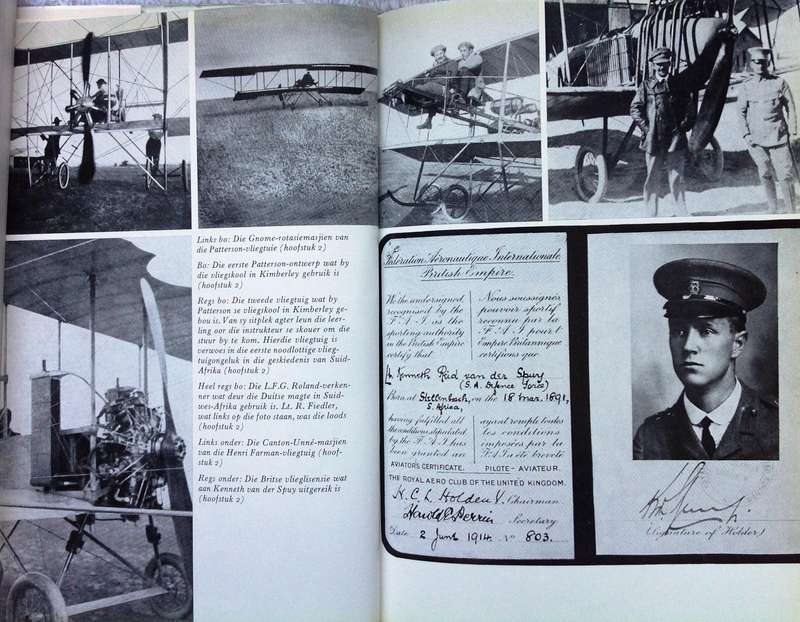 Links bo: Die Gnome-rotasiemasjien van
die Patterson-vliegtuie (hoofstuk 2)
Bo: Die eerste Patterson-ontwerp wat by
die vliegskool in Kimberley gebruik is
(hoofstuk 2)
Regs bo: Die tweede vliegtuig wat by
Paterson se vliegskool in Kimberley ge-
bou is. Van sy sitplek agter leun die leer-
ling oor die instrukteur se skouer om die
stuur by te kom. Hierdie vliegtuig is
verwoes in die eerste noodlottige vlieg-
tuigongeluk in die geskiedenis van Suid-
Afrika (hoofstuk 2)
Heel regs bo: Die L.F.G. Roland-verken-
ner wat deur die Duitse magte in Suid-
wes-Afrika gebruik is. Lt. R. Fiedler,
wat links op die foto staan, was die loods
(hoofstuk 2)
Links onder: Die Canton-Unné-masjien
van die Henri Farman-vliegtuig (hoof-
stuk 2)
Regs onder: Die Britse vlieglisensie wat
aan Kenneth van der Spuy uitgereik is
(hoofstuk 2)
Fédération Aéronautique Internationale
British Empire.
We the undersigned
recognised by the
F.A.I. as the
sporting authority
in the British Empire
certify that
Nous soussignés
pouvoir sportif
reconnu par la
F.A.I. pour l'
Empire Britannique
certifions que
Kenneth Reid van der Spuy
(S.A. Defence Force)
Born at Stellenbosch, on the 18 Mar. 1891,
S. Africa,
having fulfilled all
the conditions stipulated
by the F.A.I. has
been granted an
ayant rempli toutes
les conditions
imposées par la
F.A.I. a été breveté
AVIATOR'S CERTIFICATE. PILOTE-AVIATEUR.
THE ROYAL AERO CLUB OF THE UNITED KINGDOM.
H.C.L. Holden Chairman
Harold E. Perrin Secretary
Date 2 June 1914. No 803.
(Signature of Holder)